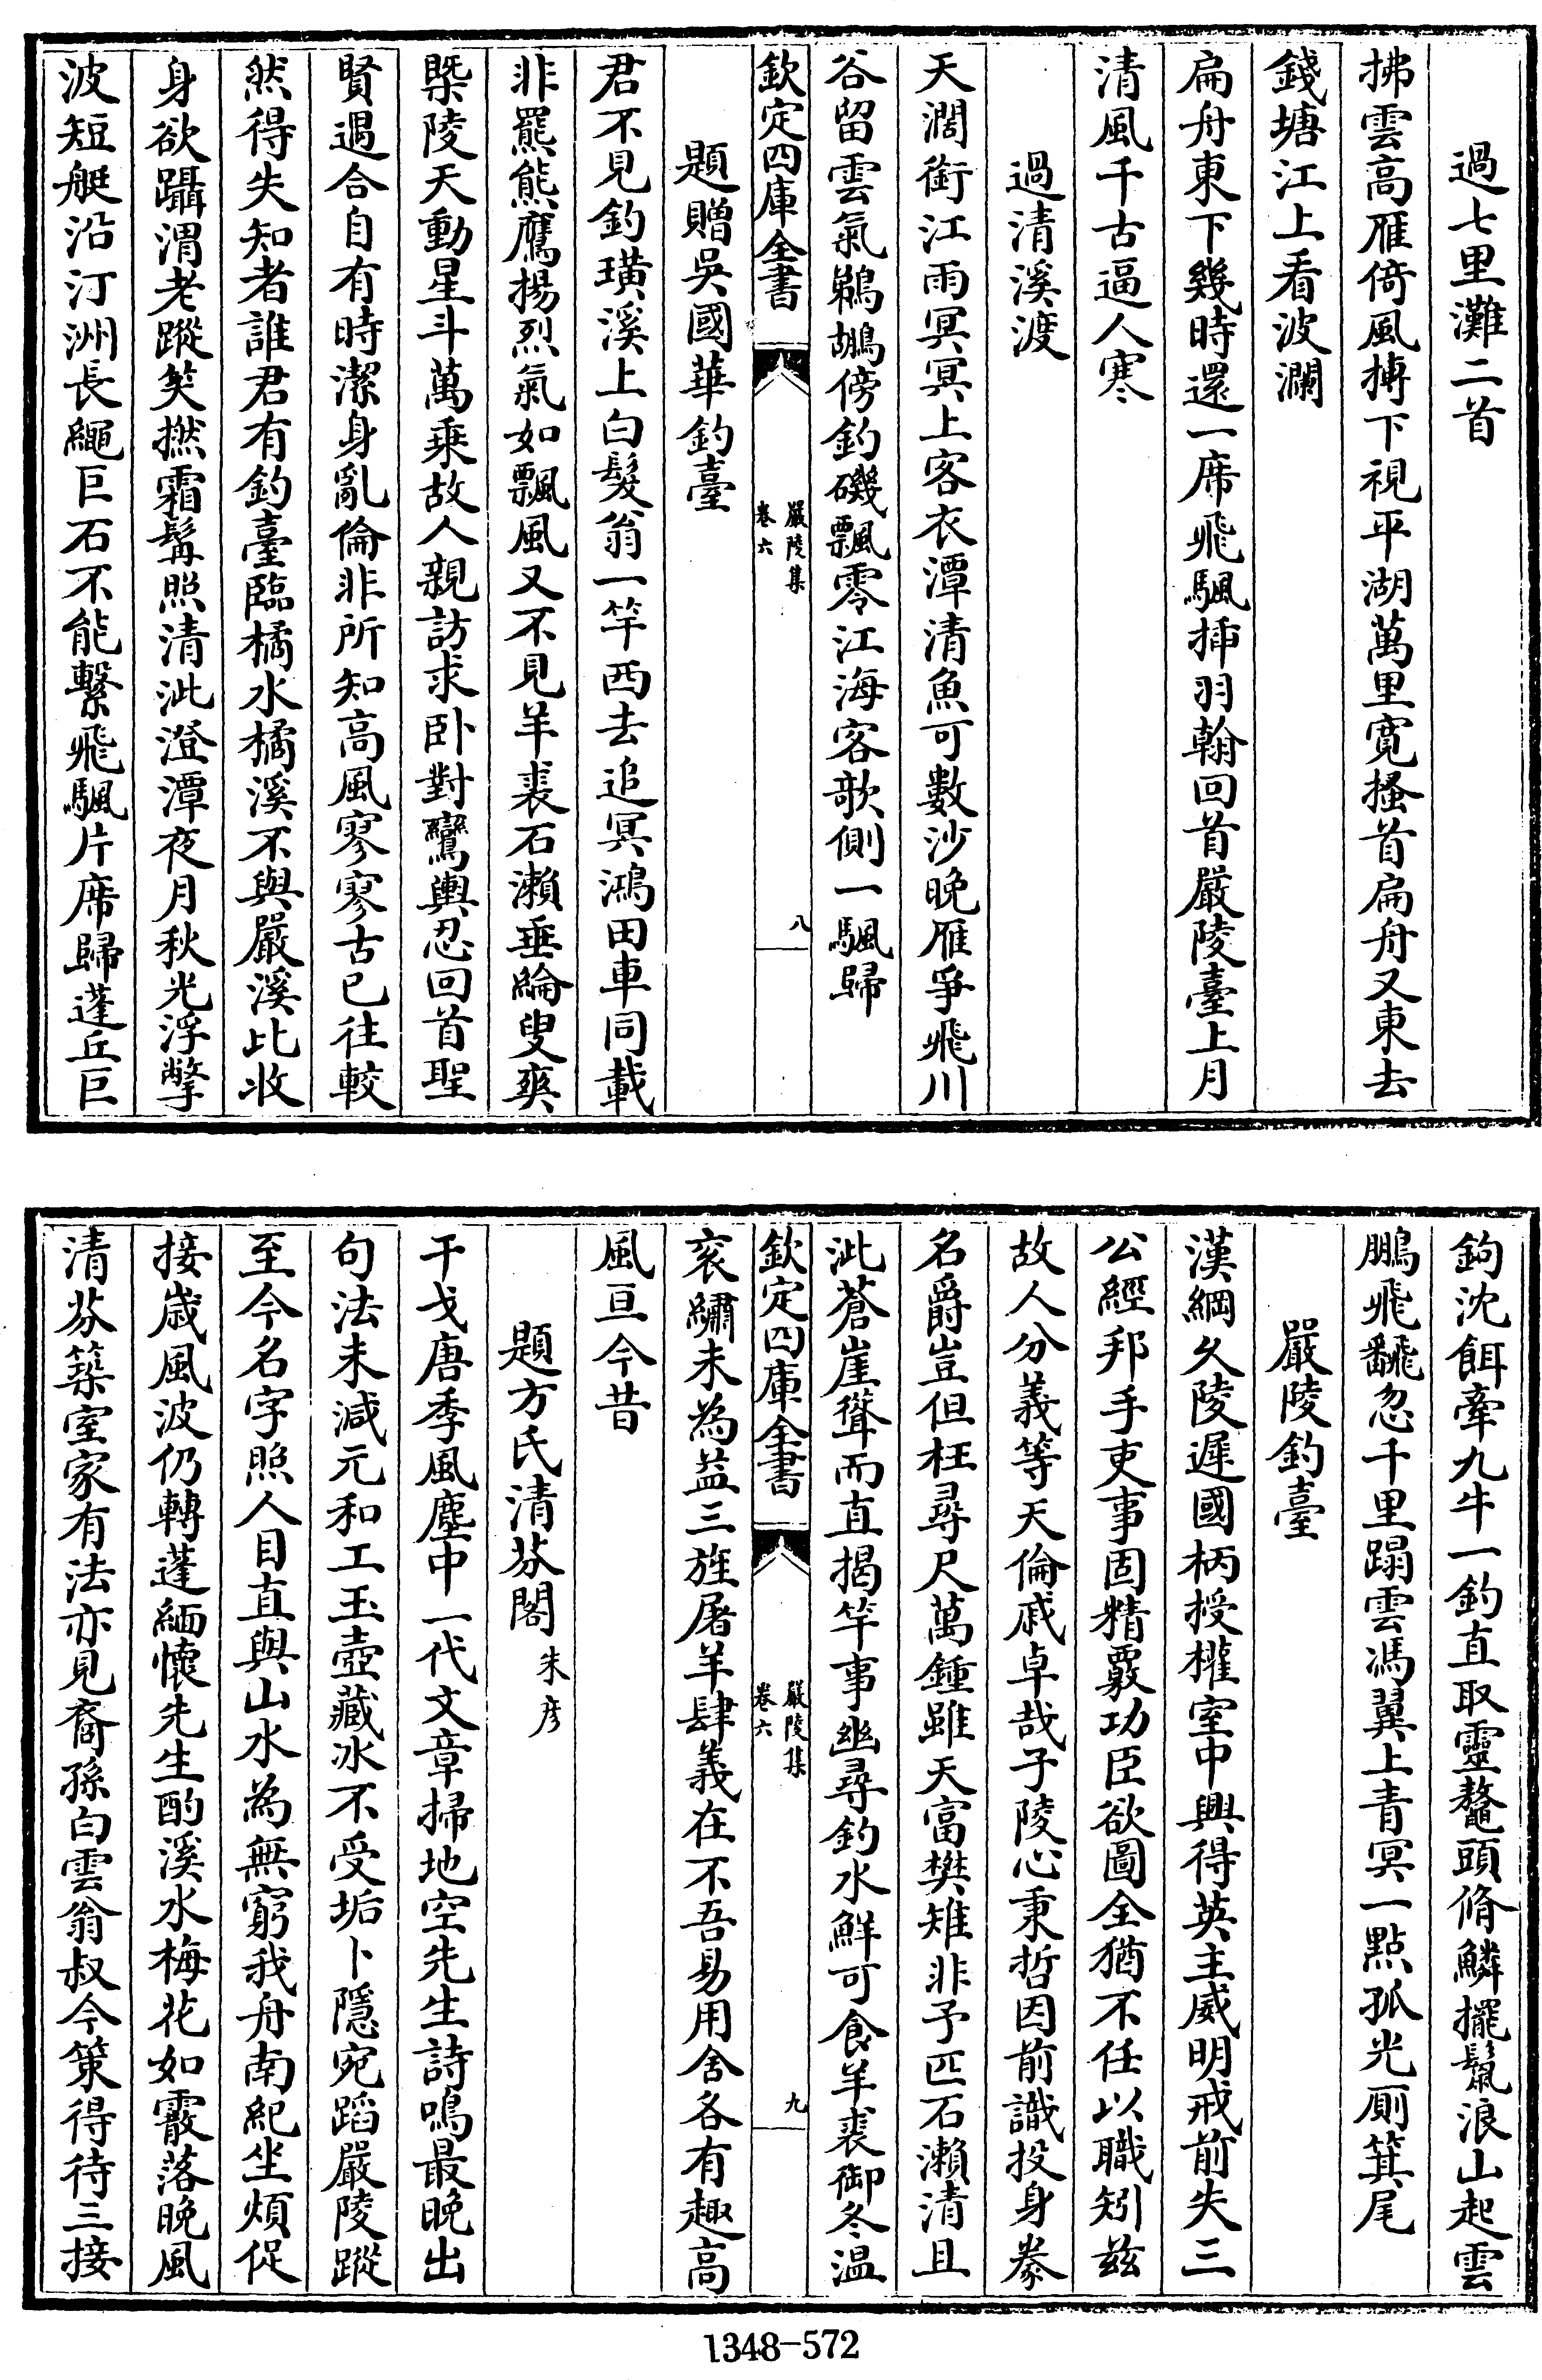 過七里灘二首
拂雲高雁倚風摶下視平湖萬里寬搔首扁舟又東去
錢塘江上看波瀾
扁舟東下幾時還一席飛颿揷羽翰回首嚴陵臺上月
清風千古逼人寒
過清溪渡
天濶銜江雨冥冥上客衣潭清魚可數沙晚雁爭飛川
谷留雲氣鵜鶘傍釣磯飄零江海客欹側一颿歸
欽定四庫全書
嚴陵集
卷六
八
題贈吳國華釣臺
君不見釣璜溪上白髮翁一竿西去追冥鴻田車同載
非羆熊鷹揚烈氣如飄風又不見羊裘石瀬垂綸叟爽
槩陵天動星斗萬乗故人親訪求卧對鸞輿忍回首聖
賢遇合自有時潔身亂倫非所知高風寥寥古已往較
然得失知者誰君有釣臺臨橘水橘溪不與嚴溪比收
身欲躡渭老蹤笑撚霜髯照清泚澄潭夜月秋光浮擎
波短艇沿汀洲長繩巨石不能繫飛颿片席歸蓬丘巨
鉤沈餌牽九牛一釣直取靈鼇頭脩鱗擺鬛浪山起雲
鵬飛翻忽千里蹋雲馮翼上青冥一點孤光厠箕尾
嚴陵釣臺
漢綱久陵遲國柄授權室中興得英主威明戒前失三
公經邦手吏事固精覈功臣欲圖全猶不任以職矧兹
故人分義等天倫戚卓哉子陵心秉哲因前識投身豢
名爵豈但枉尋尺萬鍾雖天富樊雉非予匹石瀬清且
泚蒼崖聳而直揭竿事幽尋釣水鮮可食羊裘御冬温
欽定四庫全書
嚴陵集
卷六
九
衮繡未為益三旌屠羊肆義在不吾易用舍各有趣高
風亘今昔
題方氏清芬閣 朱彦
干戈唐季風塵中一代文章掃地空先生詩鳴最晚出
句法未減元和工玉壺藏冰不受垢卜隱宛蹈嚴陵蹤
至今名字照人目直與山水為無窮我舟南紀坐煩促
接歲風波仍轉蓬緬懷先生酌溪水梅花如霰落晚風
清芬築室家有法亦見裔孫白雲翁叔今策得待三接
1348-572